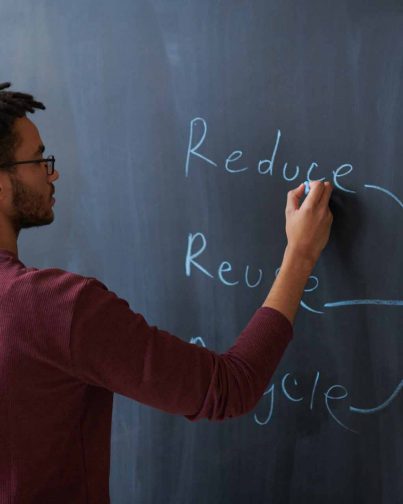 Reduce
Reuse
Recycle